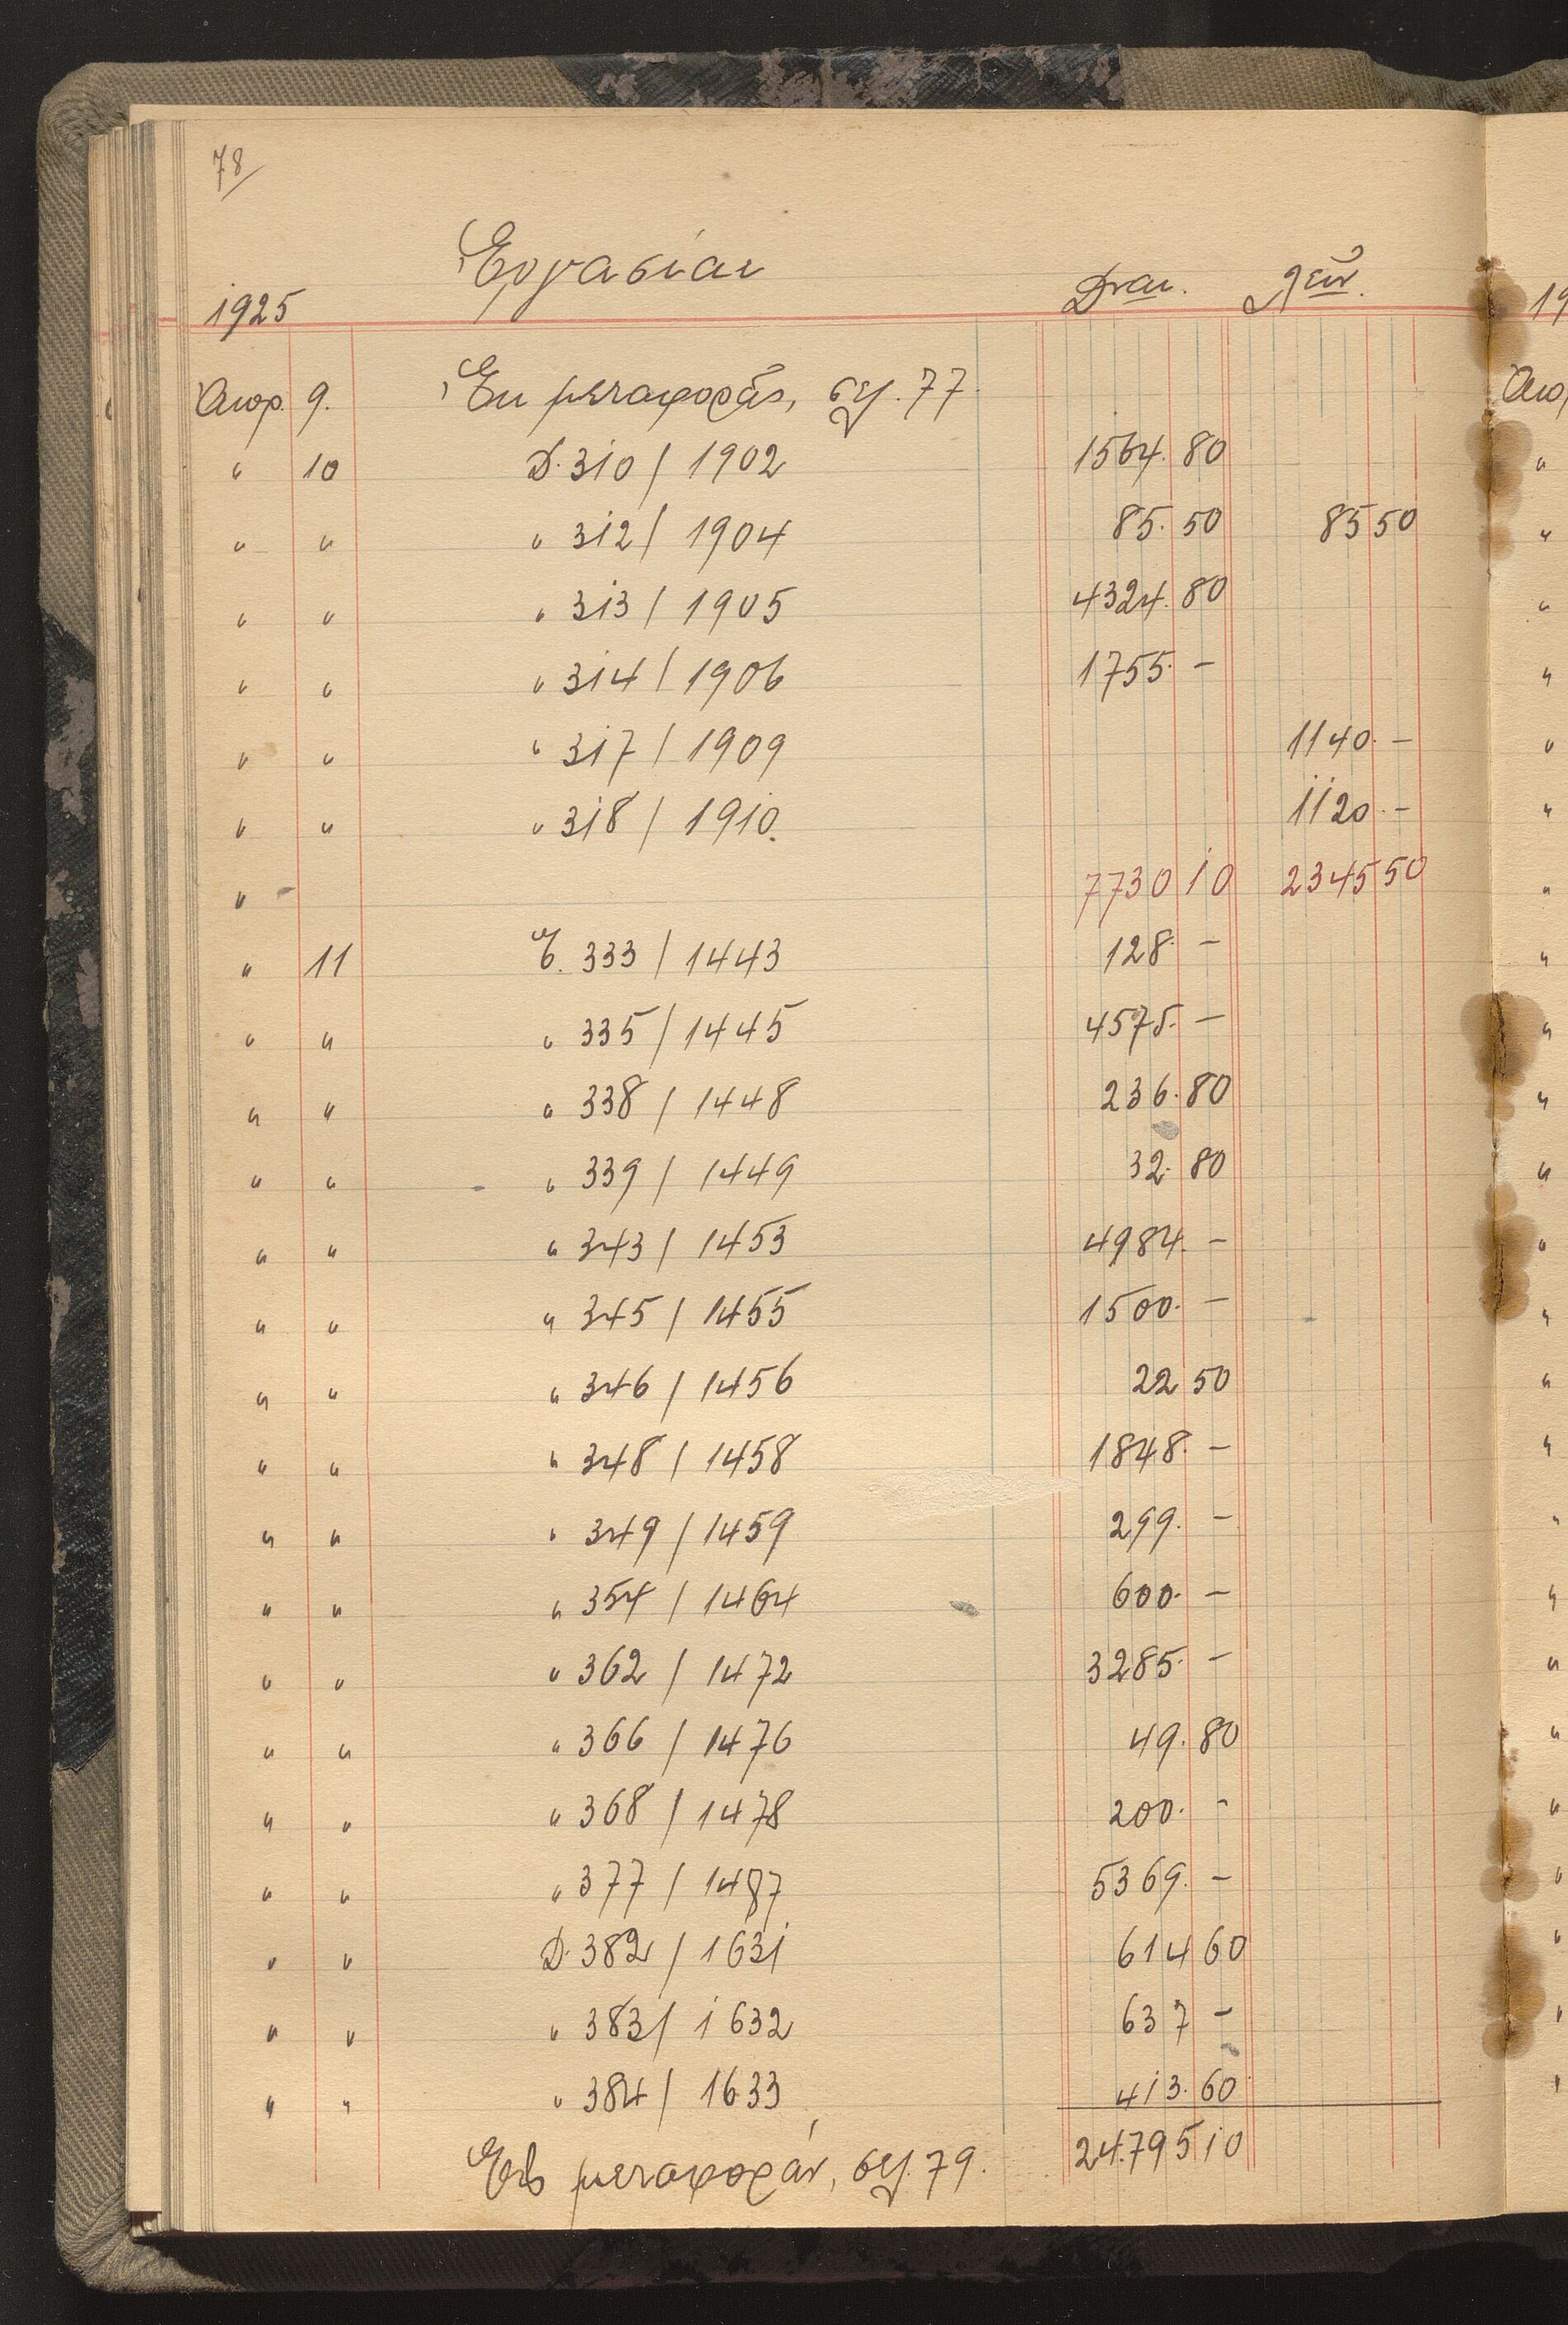 78
Ἐργασίαι
1925
Δναι. Λειν.
9. Ἐκ μεταφορᾶς, σελ. 77
" 10 D. 310 / 1902 1564. 80
" " " 312 / 1904 85. 50 85 50
" " " 313 / 1905 4324. 80
" " " 314 / 1906 1755. -
" " " 317 / 1909 1140. -
" " " 318 / 1910. 1120. -
" 7730 10 2345 50
" 11 333 / 1443 128. -
" " " 335 / 1445 4575. -
" " " 338 / 1448 236. 80
" " " 339 / 1449 32. 80
" " " 343 / 1453 4984. -
" " " 345 / 1455 1500. -
" " " 346 / 1456 22 50
" " " 348 / 1458 1848. -
" " " 349 / 1459 299. -
" " " 354 / 1464 600. -
" " " 362 / 1472 3285. -
" " " 366 / 1476 49. 80
" " " 368 / 1478 200. -
" " " 377 / 1487 5369. -
" " D. 382 / 1631 614 60
" " " 383 / 1632 637 -
" " " 384 / 1633 413. 60
Εἰς μεταφοράν, σελ. 79. 24.795 10
19